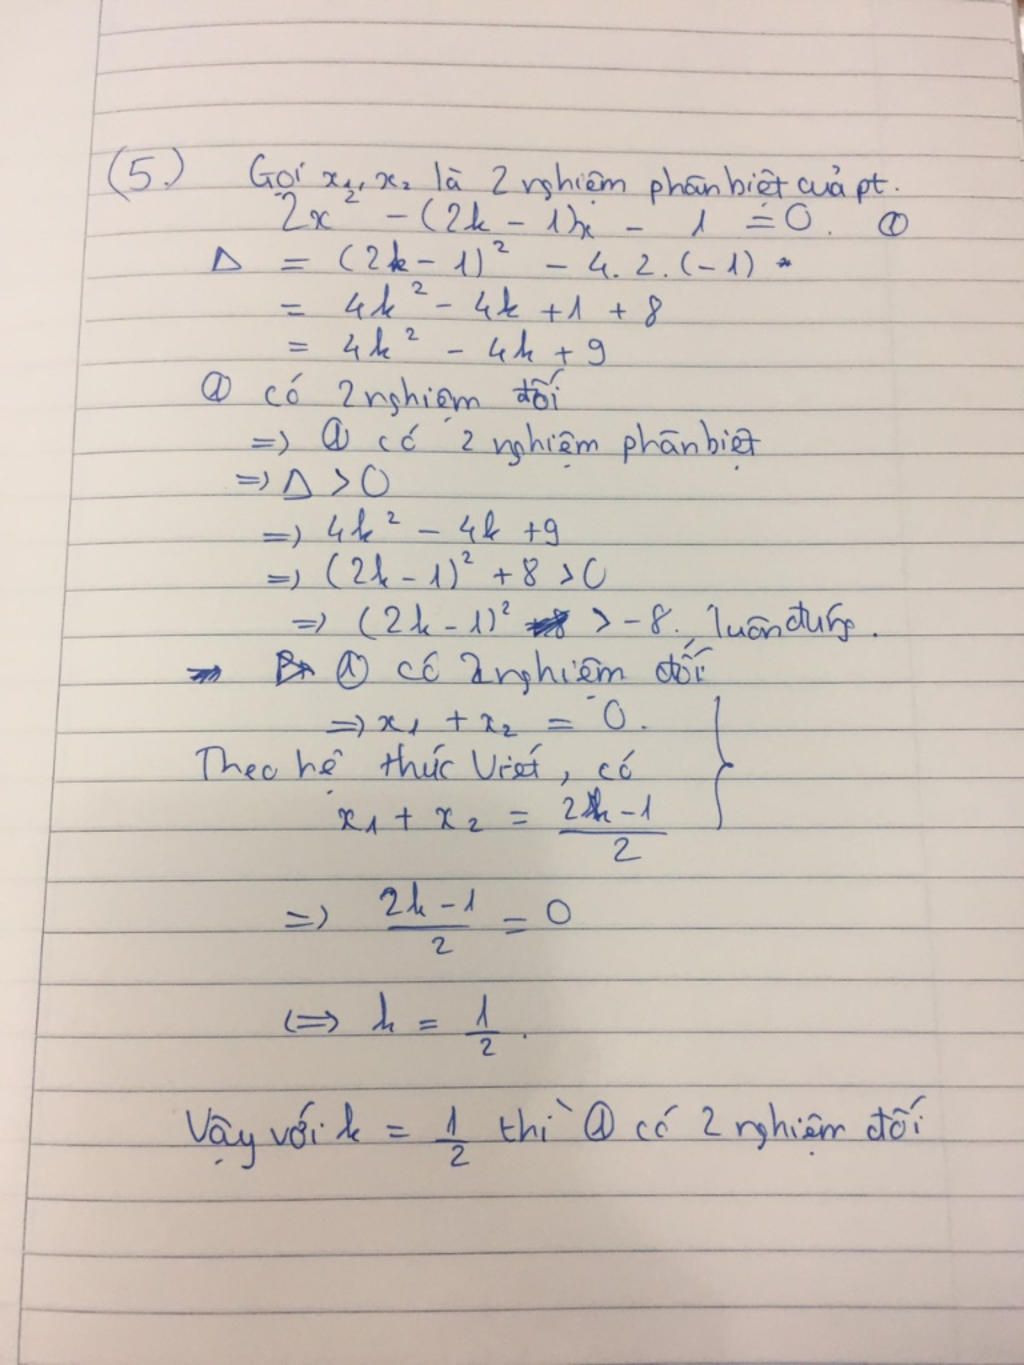 (5.) Gọi x₁, x₂ là 2 nghiệm phân biệt của pt.
2x² - (2k - 1)x - 1 = 0. ①
Δ = (2k - 1)² - 4. 2. (-1)
= 4k² - 4k + 1 + 8
= 4k² - 4k + 9
① có 2 nghiệm đối
=> ① có 2 nghiệm phân biệt
=> Δ > 0
=> 4k² - 4k + 9
=> (2k - 1)² + 8 > 0
=> (2k - 1)² > -8. luôn đúng.
① có 2 nghiệm đối
=> x₁ + x₂ = 0.
Theo hệ thức Viét, có
x₁ + x₂ = (2k - 1)/2
=> (2k - 1)/2 = 0
<=> k = 1/2.
Vậy với k = 1/2 thì ① có 2 nghiệm đối